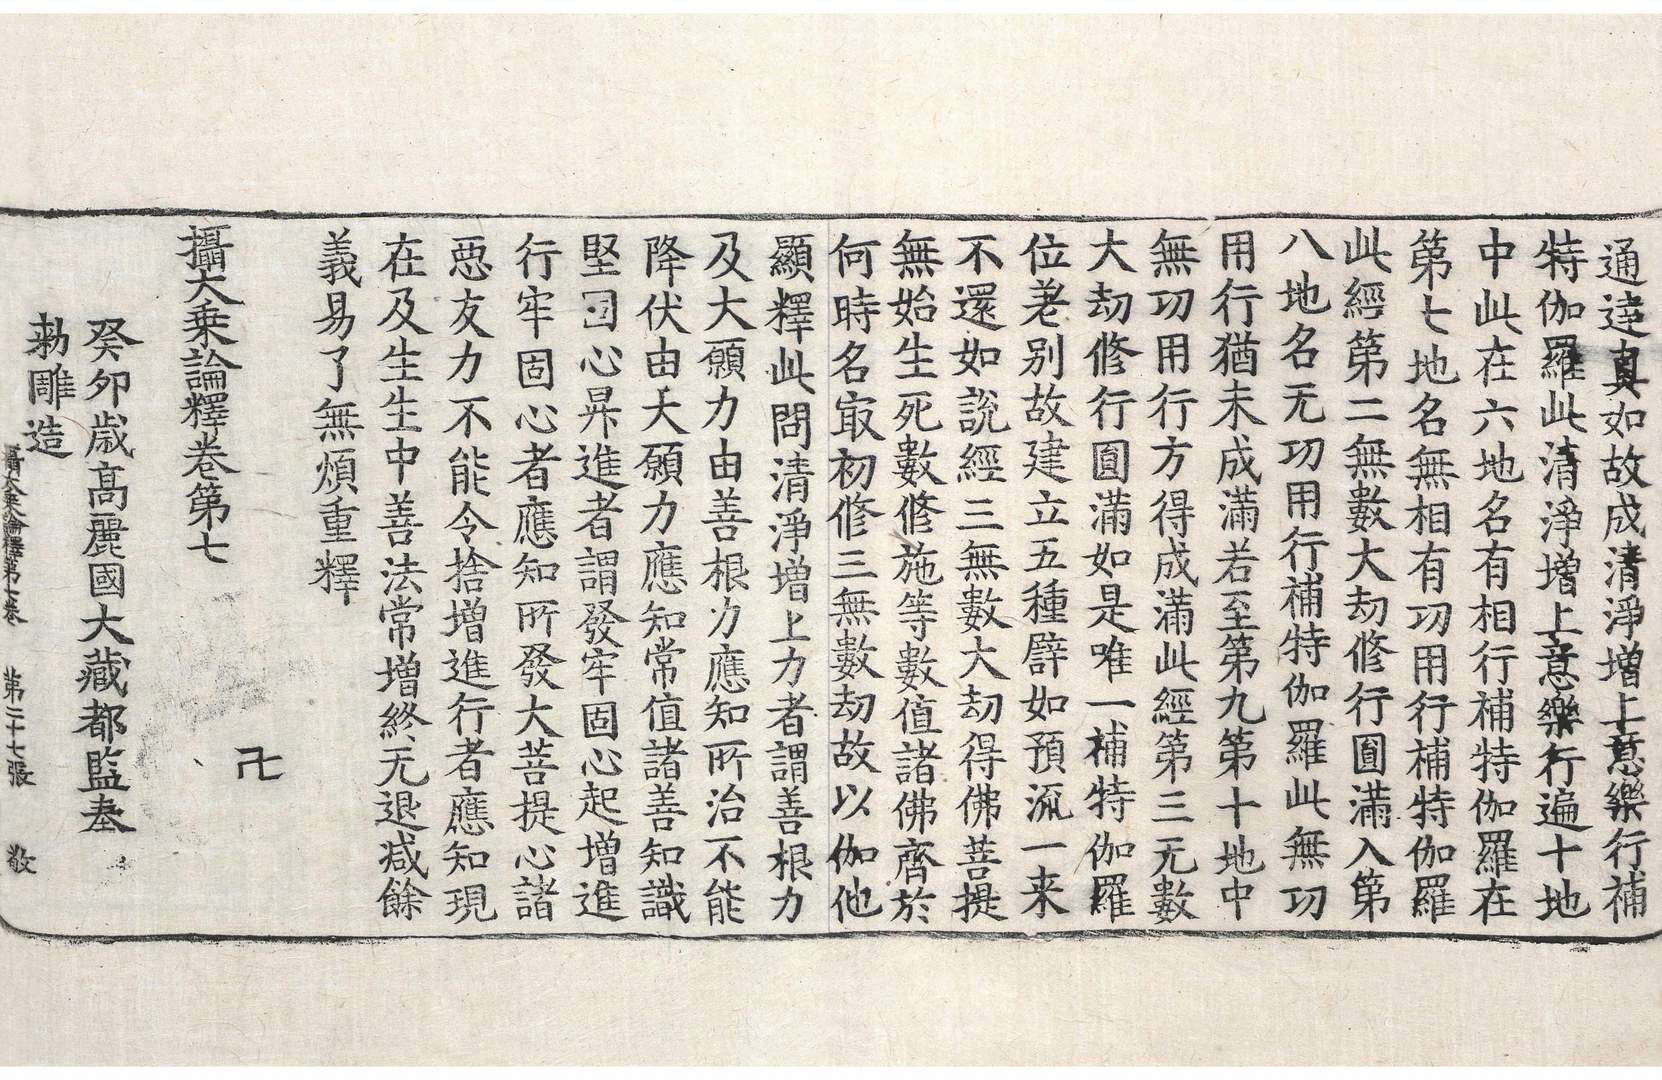 通達真如故成清淨增上意樂行補
特伽羅此清淨增上意樂行遍十地
中此在六地名有相行補特伽羅在
第七地名無相有功用行補特伽羅
此經第二無數大劫修行圓滿入第
八地名无功用行補特伽羅此無功
用行猶未成滿若至第九第十地中
無功用行方得成滿此經第三无數
大劫修行圓滿如是唯一補特伽羅
位差别故建立五種譬如預流一来
不還如說經三無數大劫得佛菩提
無始生死數修施等數值諸佛齊於
何時名㝡初修三無數劫故以伽他
顯釋此問清淨增上力者謂善根力
及大願力由善根力應知所治不能
降伏由大願力應知常值諸善知識
堅固心昇進者謂發牢固心起增進
行牢固心者應知所發大菩提心諸
惡友力不能令捨增進行者應知現
在及生生中善法常增終无退減餘
義易了無煩重釋
卍
攝大乘論釋卷第七
癸卯歲高麗國大藏都監奉
勅雕造
攝大乘論釋第七卷 第二十七張 敬